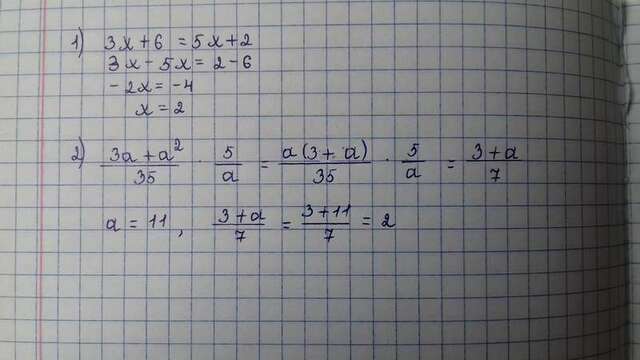 1) 3x + 6 = 5x + 2
3x - 5x = 2 - 6
- 2x = - 4
x = 2
2) \frac{3a + a^2}{35} \cdot \frac{5}{a} = \frac{a(3 + a)}{35} \cdot \frac{5}{a} = \frac{3 + a}{7}
a = 11, \frac{3 + a}{7} = \frac{3 + 11}{7} = 2